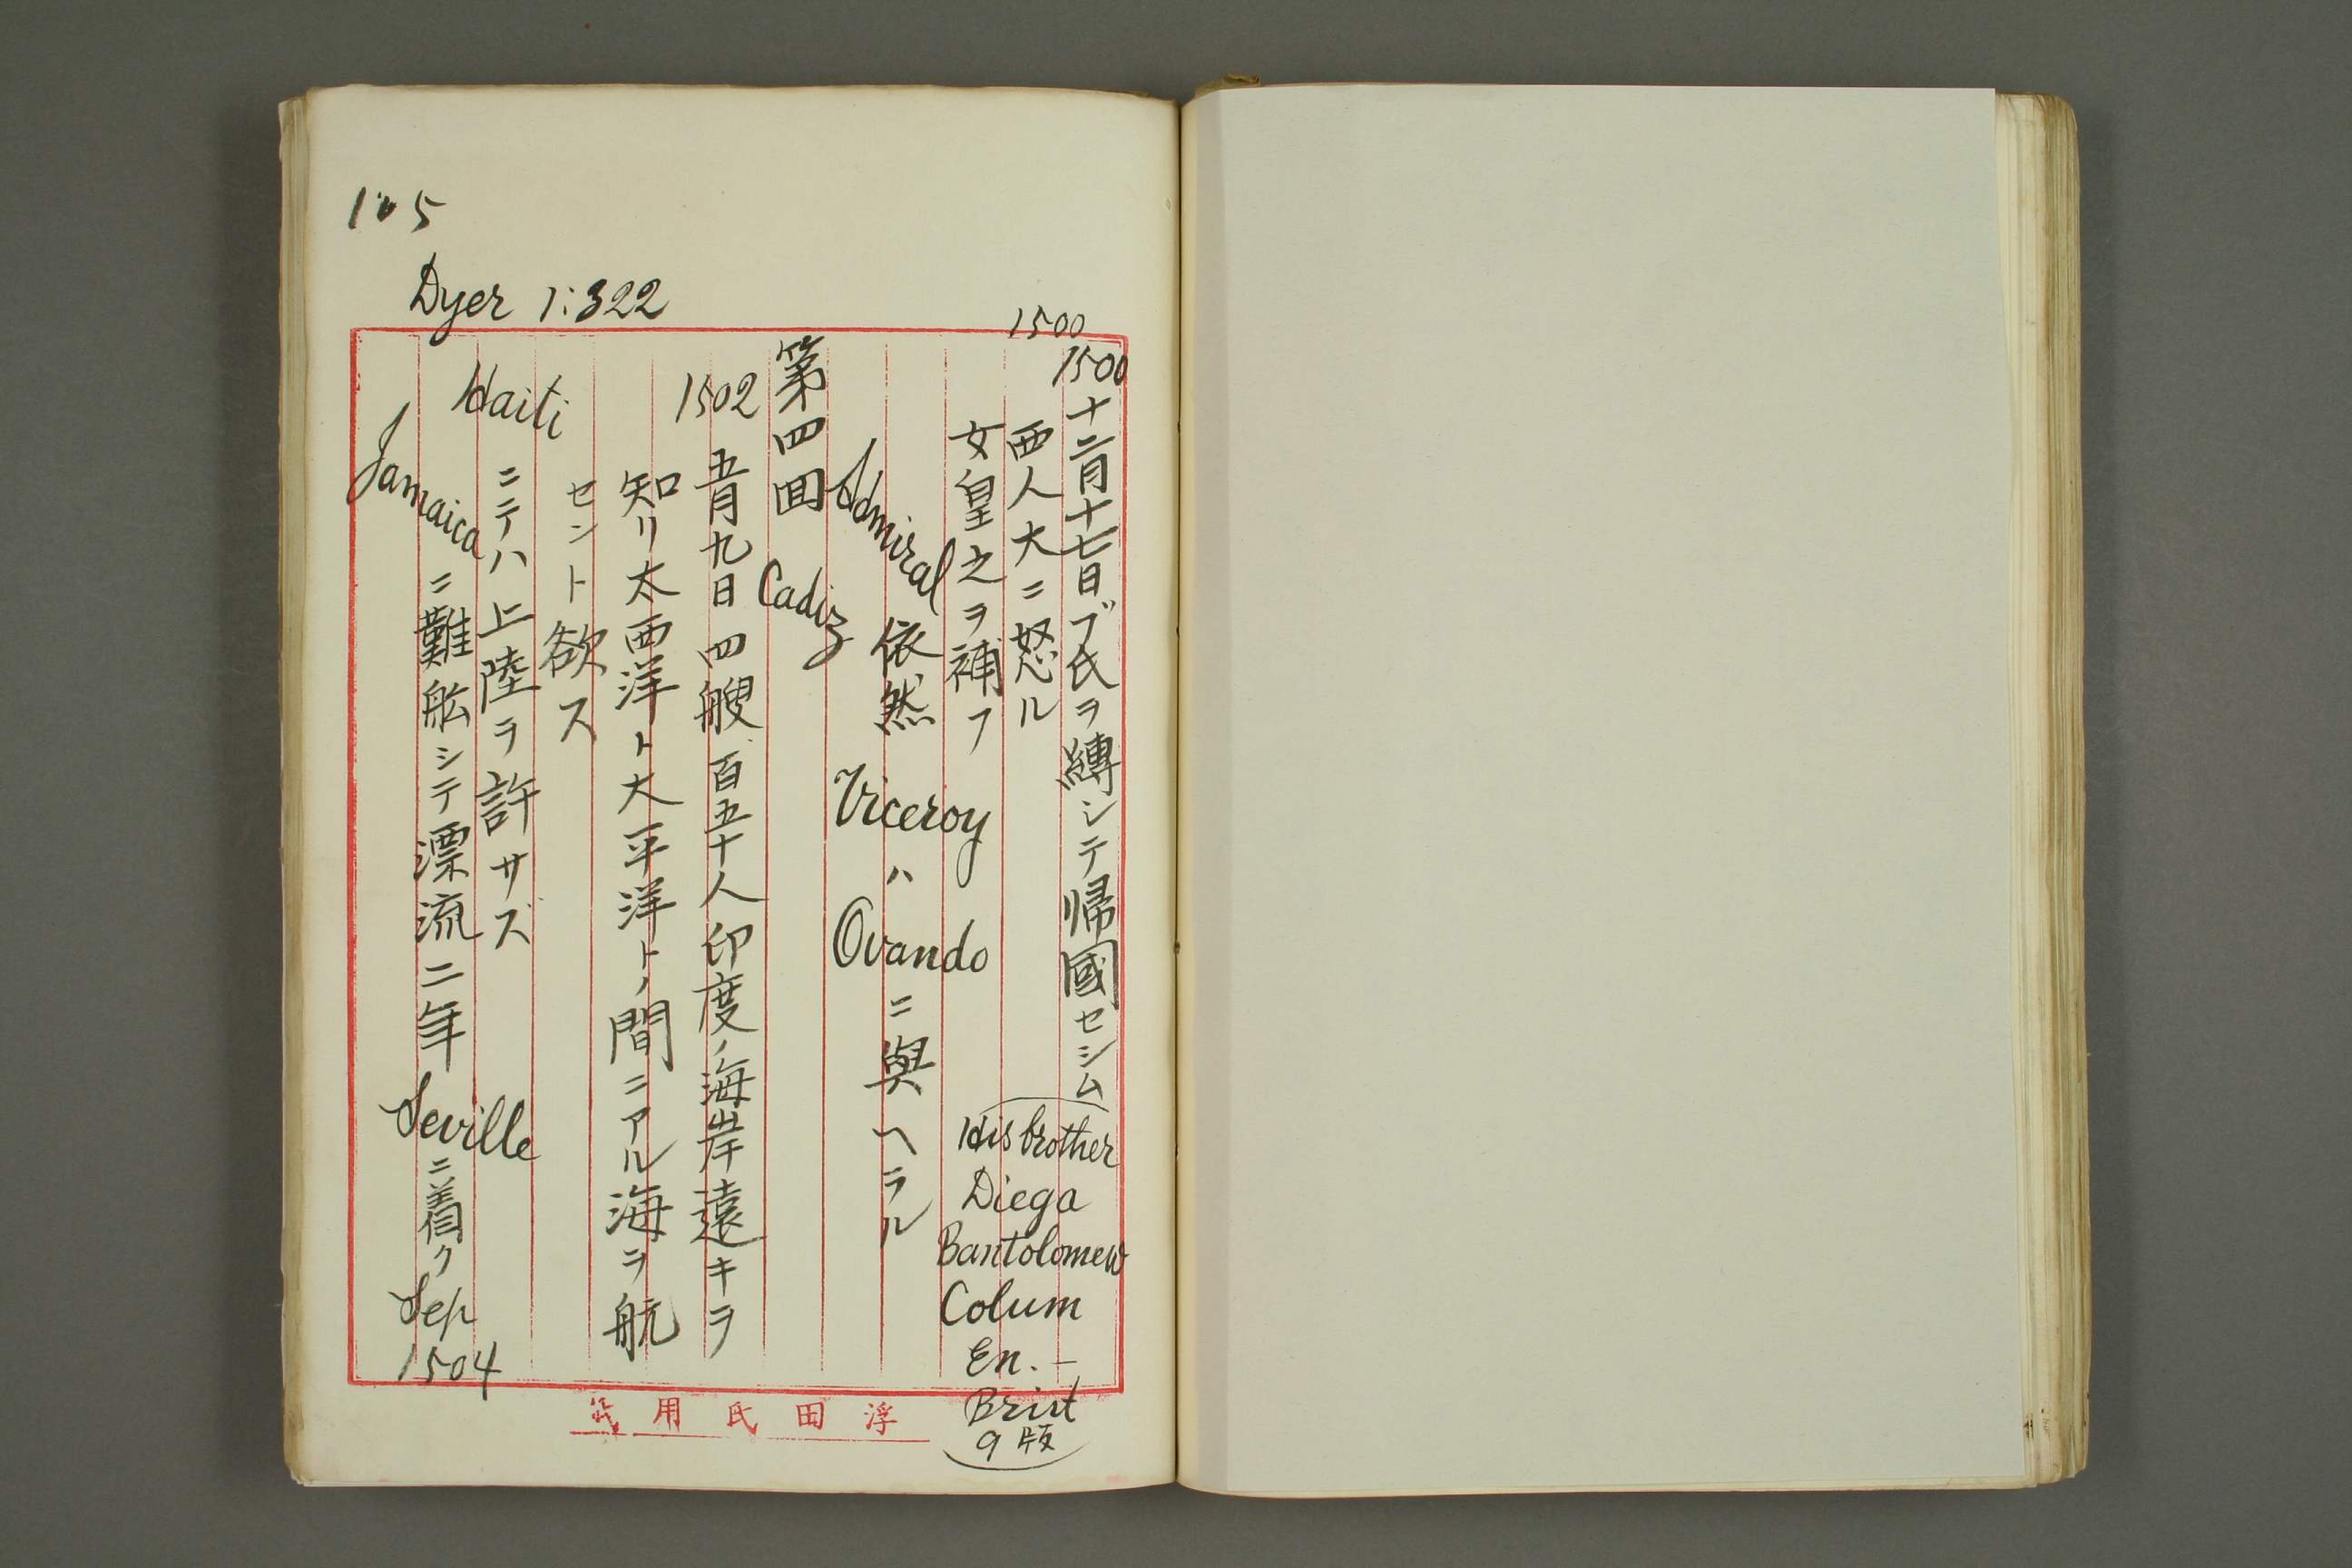 105
Dyer 1:322
1500
1500 十二月十七日ブ氏ヲ縛シテ帰國セシム
(His brother
Diega
Bantolomew
Colum
En. —
Brist
9版)
西人大ニ怒ル
女皇之ヲ補フ
Admiral 依然 Viceroy ハ Ovando ニ與ヘラル
第四回 Cadiz
1502 五月九日 四艘 百五十人 印度ノ海岸遠キヲ
知リ太西洋ト大平洋トノ間ニアル海ヲ航
セント欲ス
Haiti ニテハ上陸ヲ許サズ
Jamaica ニ難舩シテ漂流二年 Seville ニ着ク Sep 1504
浮田氏用箋